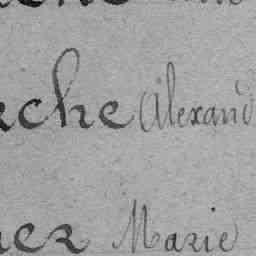 eche Alexand
ez Marie